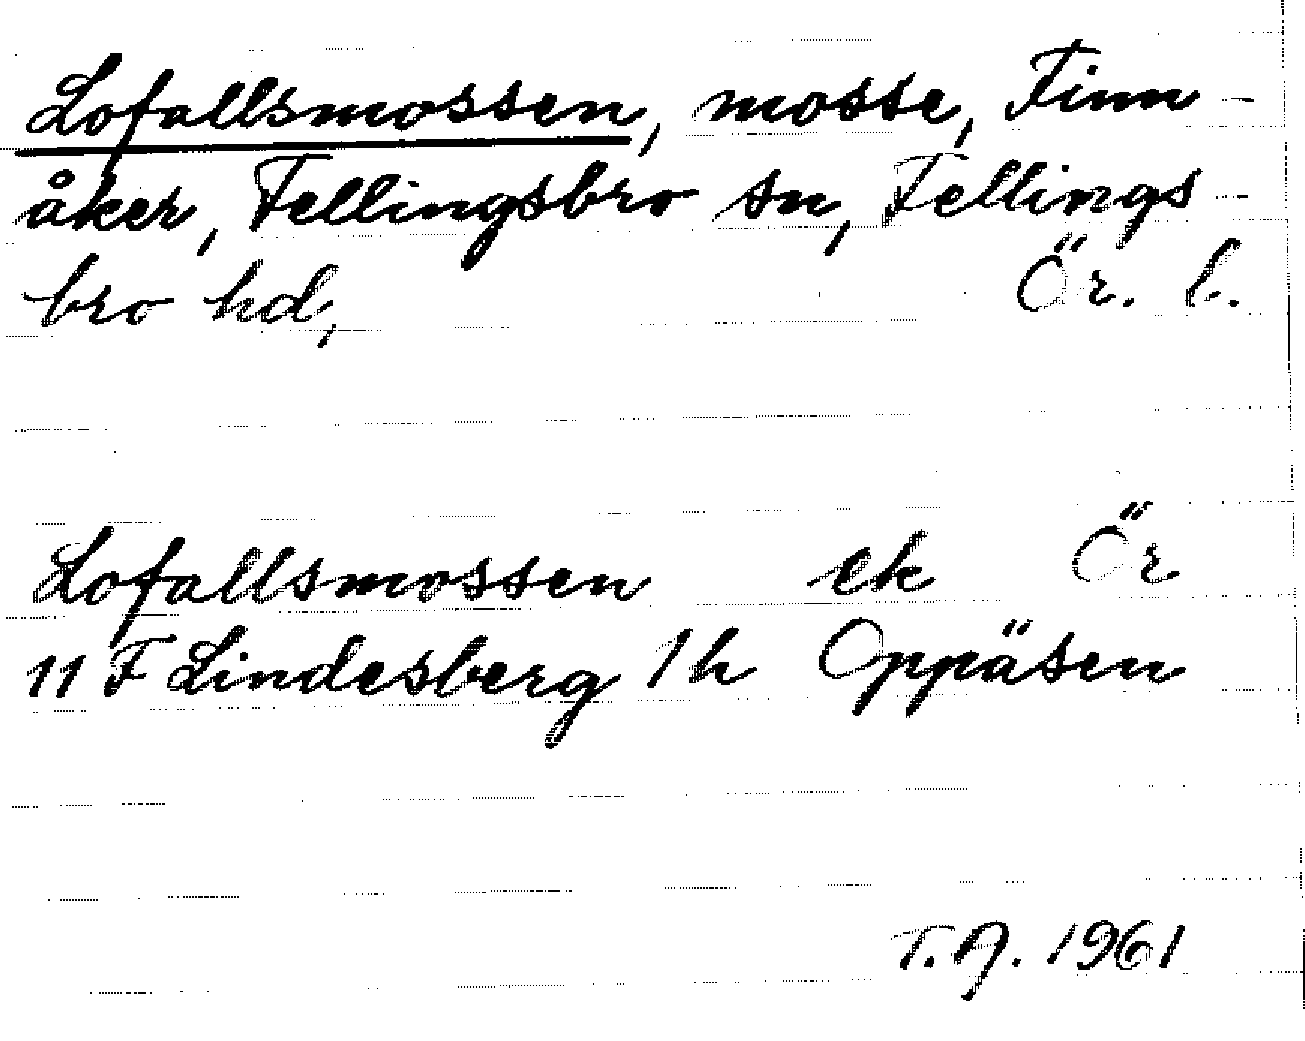 Lofallsmossen, mosse, Finn-
åker, Fellingsbro sn, Fellings-
bro hd, Ör. l.
Lofallsmossen ek Ör
11 F Lindesberg 1 h Oppäsen
T.A. 1961